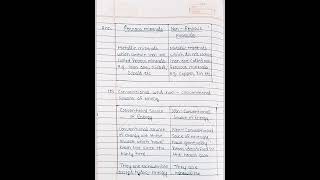 Ans:
Ferrous minerals
Non-Ferrous minerals
Metallic minerals
which contain iron are
called ferrous minerals
e.g. iron ore, nickel,
Cobalt etc.
Metallic minerals
which do not contain
iron are called non
ferrous minerals
e.g. copper, tin etc.
Conventional and non-conventional
Source of energy
Conventional Source
of Energy
Non-Conventional
Source of Energy
Conventional source
of energy are
which have
been
Non-Conventional
Source of energy
have generally
been identified in
the recent
They are
except hydro energy
They are
renewable